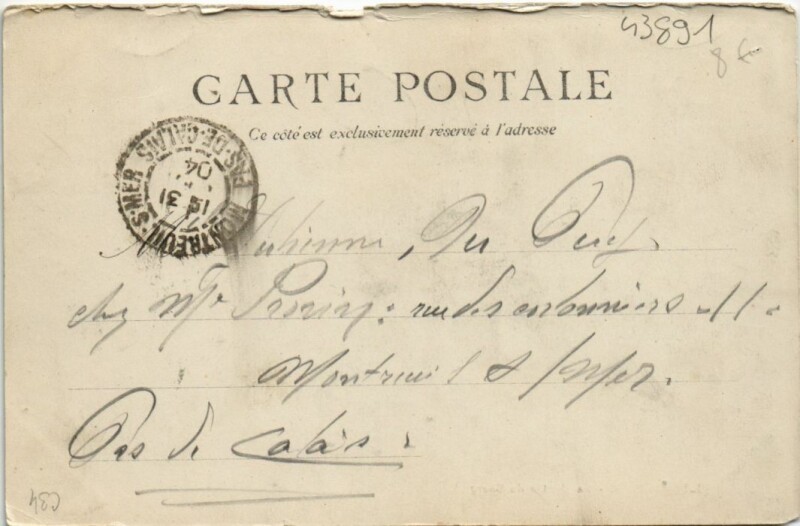 43891
8 €
CARTE POSTALE
Ce côté est exclusivement réservé à l'adresse
MONTREUIL-S-MER PAS-DE-CALAIS
15 31
04
chez Mr rue des cordonniers 11
Montreuil S/Mer.
Pas de Calais
C34